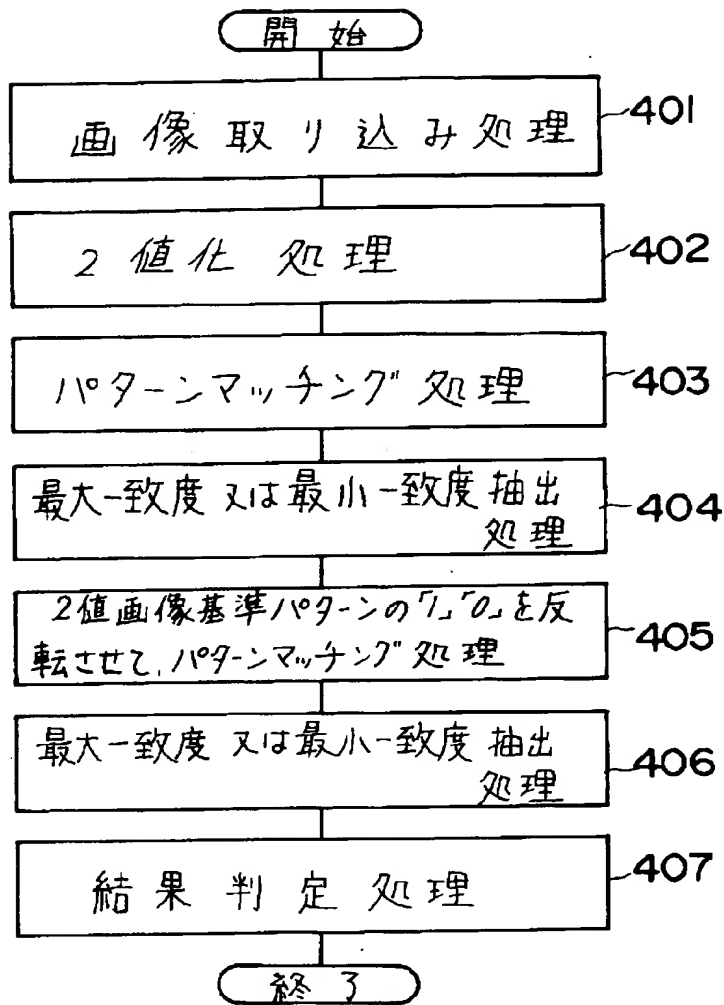 開始
画像取り込み処理 401
2値化処理 402
パターンマッチング処理 403
最大一致度又は最小一致度抽出
処理 404
2値画像基準パターンの「1」「0」を反
転させて、パターンマッチング処理 405
最大一致度又は最小一致度抽出
処理 406
結果判定処理 407
終了